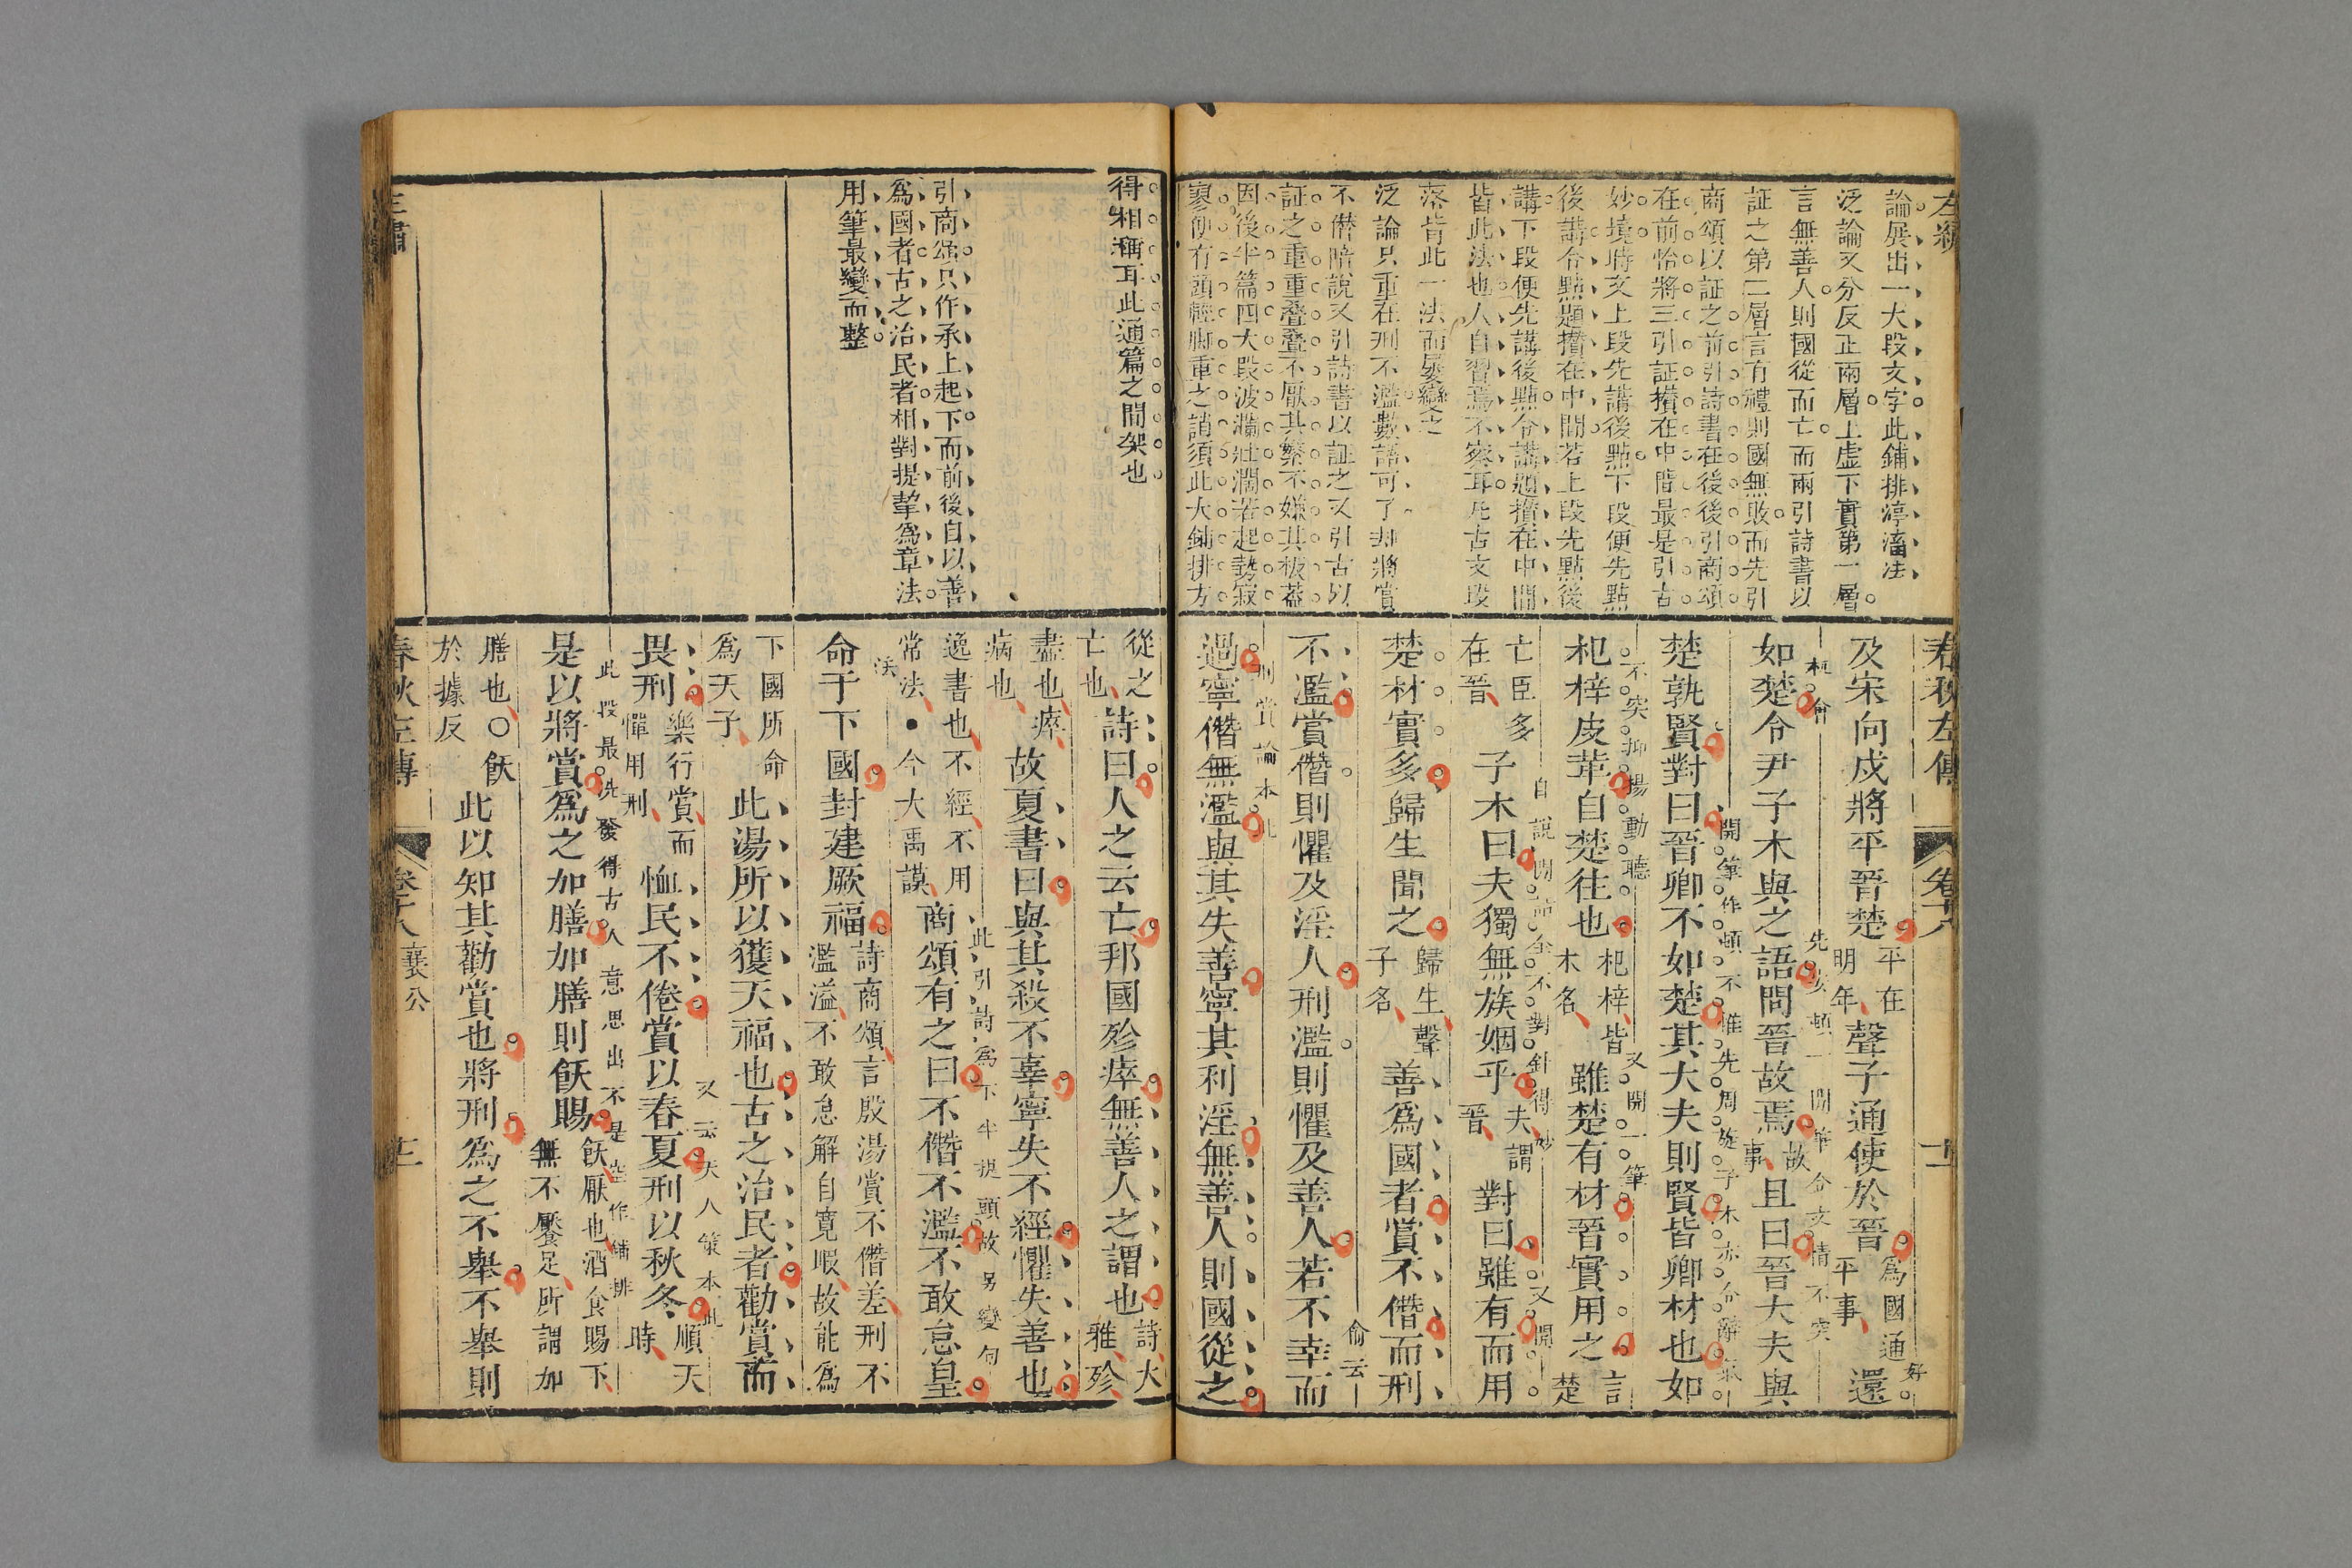 左繡
論展出一大段文字此鋪排渟滀法
泛論又分反正兩層上虛下實第一層
言無善人則國從而亡而兩引詩書以
証之第二層言有禮則國無敗而先引
商頌以証之前引詩書在後後引商頌
在前恰將三引証攢在中間最是引古
妙境時文上段先講後點下段便先點
後講令點題攢在中間若上段先點後
講下段便先講後點令講題攢在中間
皆此法也人自習焉不察耳凡古文段
落皆此一法而屡變之
泛論只重在刑不濫數語可了却將賞
不僭陪說又引詩書以証之又引古以
証之重重叠叠不厭其繁不嫌其板蓋
因後半篇四大段波瀾壯濶若起勢寂
寥便有頭輕脚重之誚須此大鋪排方
春秋左傳 卷十八 十一
及宋向戌將平晉楚平在明年聲子通使於晉為國通平事還
如楚令尹子木與之語問晉故焉故事且曰晉大夫與
楚孰賢對曰晉卿不如楚其大夫則賢皆卿材也如
杞梓皮革自楚往也杞梓皆木名雖楚有材晉實用之言楚
亡臣多在晉子木曰夫獨無族姻乎夫謂晉對曰雖有而用
楚材實多歸生聞之歸生聲子名善為國者賞不僭而刑
不濫賞僭則懼及淫人刑濫則懼及善人若不幸而
過寧僭無濫與其失善寧其利淫無善人則國從之
得相稱耳此通篇之間架也
引商頌只作承上起下而前後自以善
為國者古之治民者相對提挈為章法
用筆最變而整
從之亡也詩曰人之云亡邦國殄瘁無善人之謂也詩大雅殄
盡也瘁病也故夏書曰與其殺不辜寧失不經懼失善也
逸書也不經不用常法●今大禹謨商頌有之曰不僭不濫不敢怠皇
命于下國封建厥福詩商頌言殷湯賞不僭差刑不濫溢不敢怠解自寬暇故能為
下國所命為天子此湯所以獲天福也古之治民者勸賞而
畏刑樂行賞而憚用刑恤民不倦賞以春夏刑以秋冬順天時
是以將賞為之加膳加膳則飫賜飫厭也酒食賜下無不饜足所謂加
膳也〇飫於據反此以知其勸賞也將刑為之不舉不舉則
春秋左傳 卷十八 襄公 十二